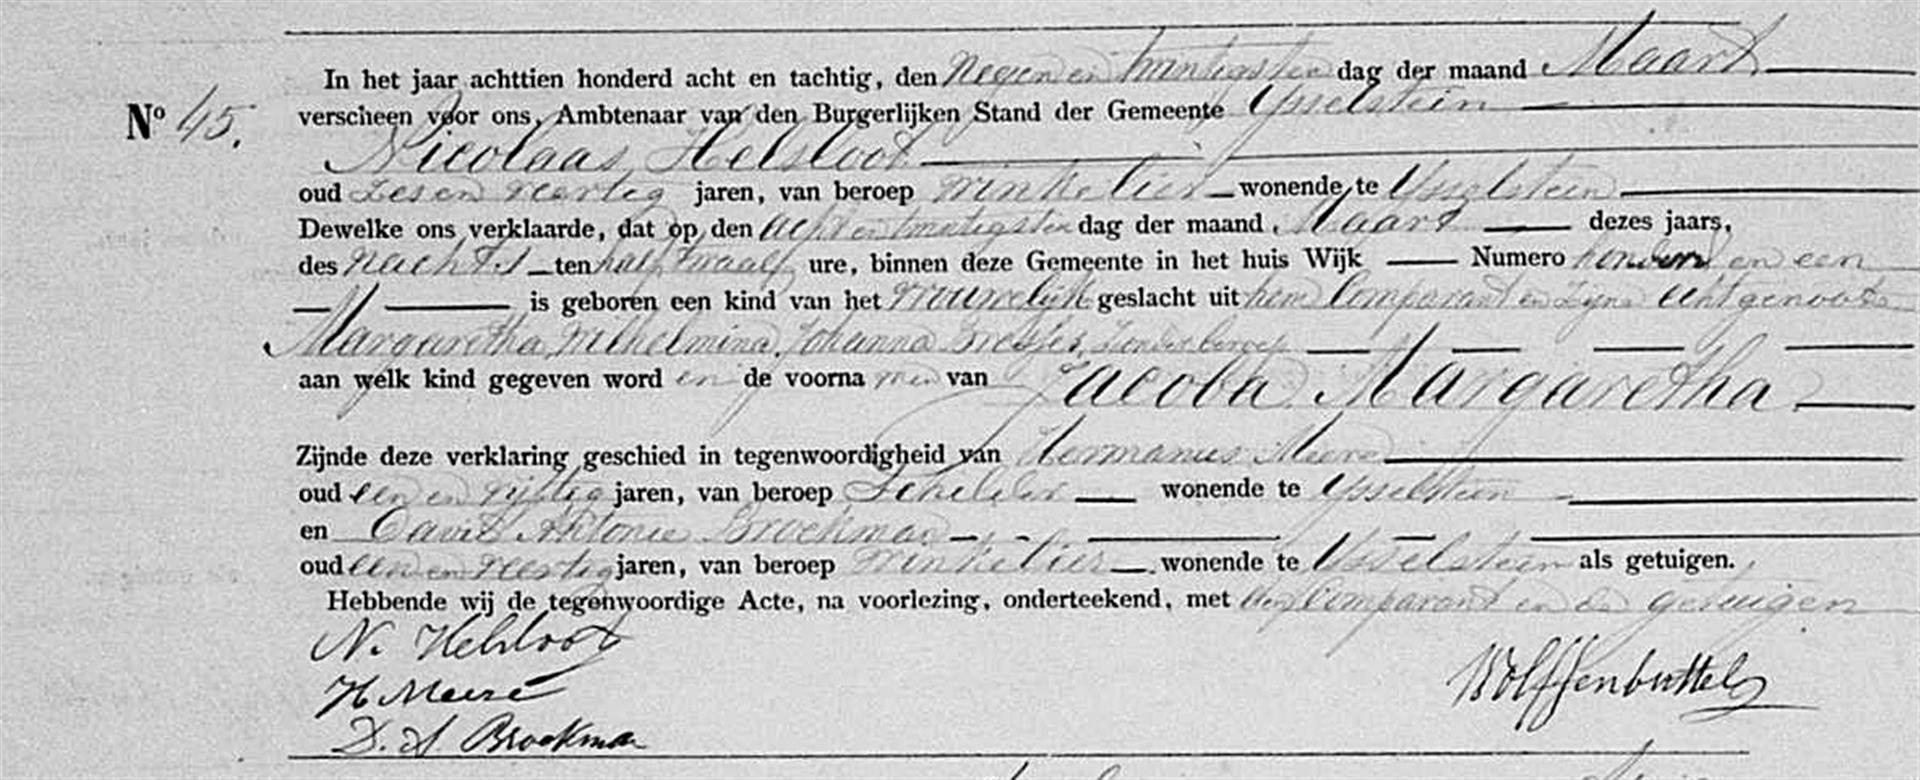 In het jaar achttien honderd acht en tachtig, den Negen en twintigsten dag der maand Maart
No 45. verscheen voor ons, Ambtenaar van den Burgerlijken Stand der Gemeente IJsselstein
Nicolaas Helsloot
oud zes en veertig jaren, van beroep winkelier wonende te IJsselstein
Dewelke ons verklaarde, dat op den acht en twintigsten dag der maand Maart dezes jaars,
des nachts ten half twaalf ure, binnen deze Gemeente in het huis Wijk Numero honderd en een
is geboren een kind van het vrouwelijk geslacht uit hem Comparant en zijne echtgenoote
Margaretha Wilhelmina Johanna zonder beroep
aan welk kind gegeven word en de voorna men van Jacoba Margaretha
Zijnde deze verklaring geschied in tegenwoordigheid van Hermanus Meere
oud een en vijftig jaren, van beroep Schilder wonende te IJsselstein
en David Antonie Brockman
oud een en veertig jaren, van beroep winkelier wonende te IJsselstein als getuigen.
Hebbende wij de tegenwoordige Acte, na voorlezing, onderteekend, met den Comparant en de getuigen
N. Helsloot
H Meere
D. A Brockman
Wolffenbuttel